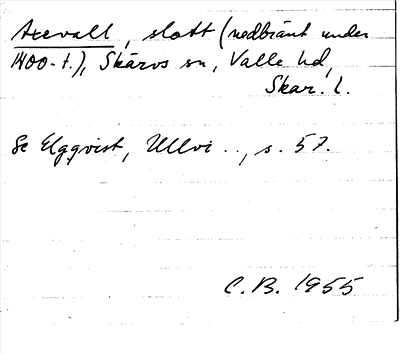 Axevall, slott (nedbränt under
1400-t.), Skärvs sn, Valle hd,
Skar. l.
Se Elgqvist, Ullvi .., s. 57.
C.B. 1955